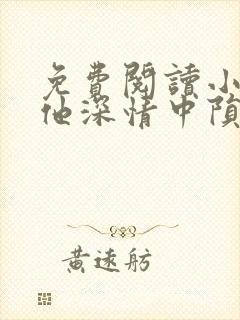 免費閱讀小
他深情中隕
黃遠舫